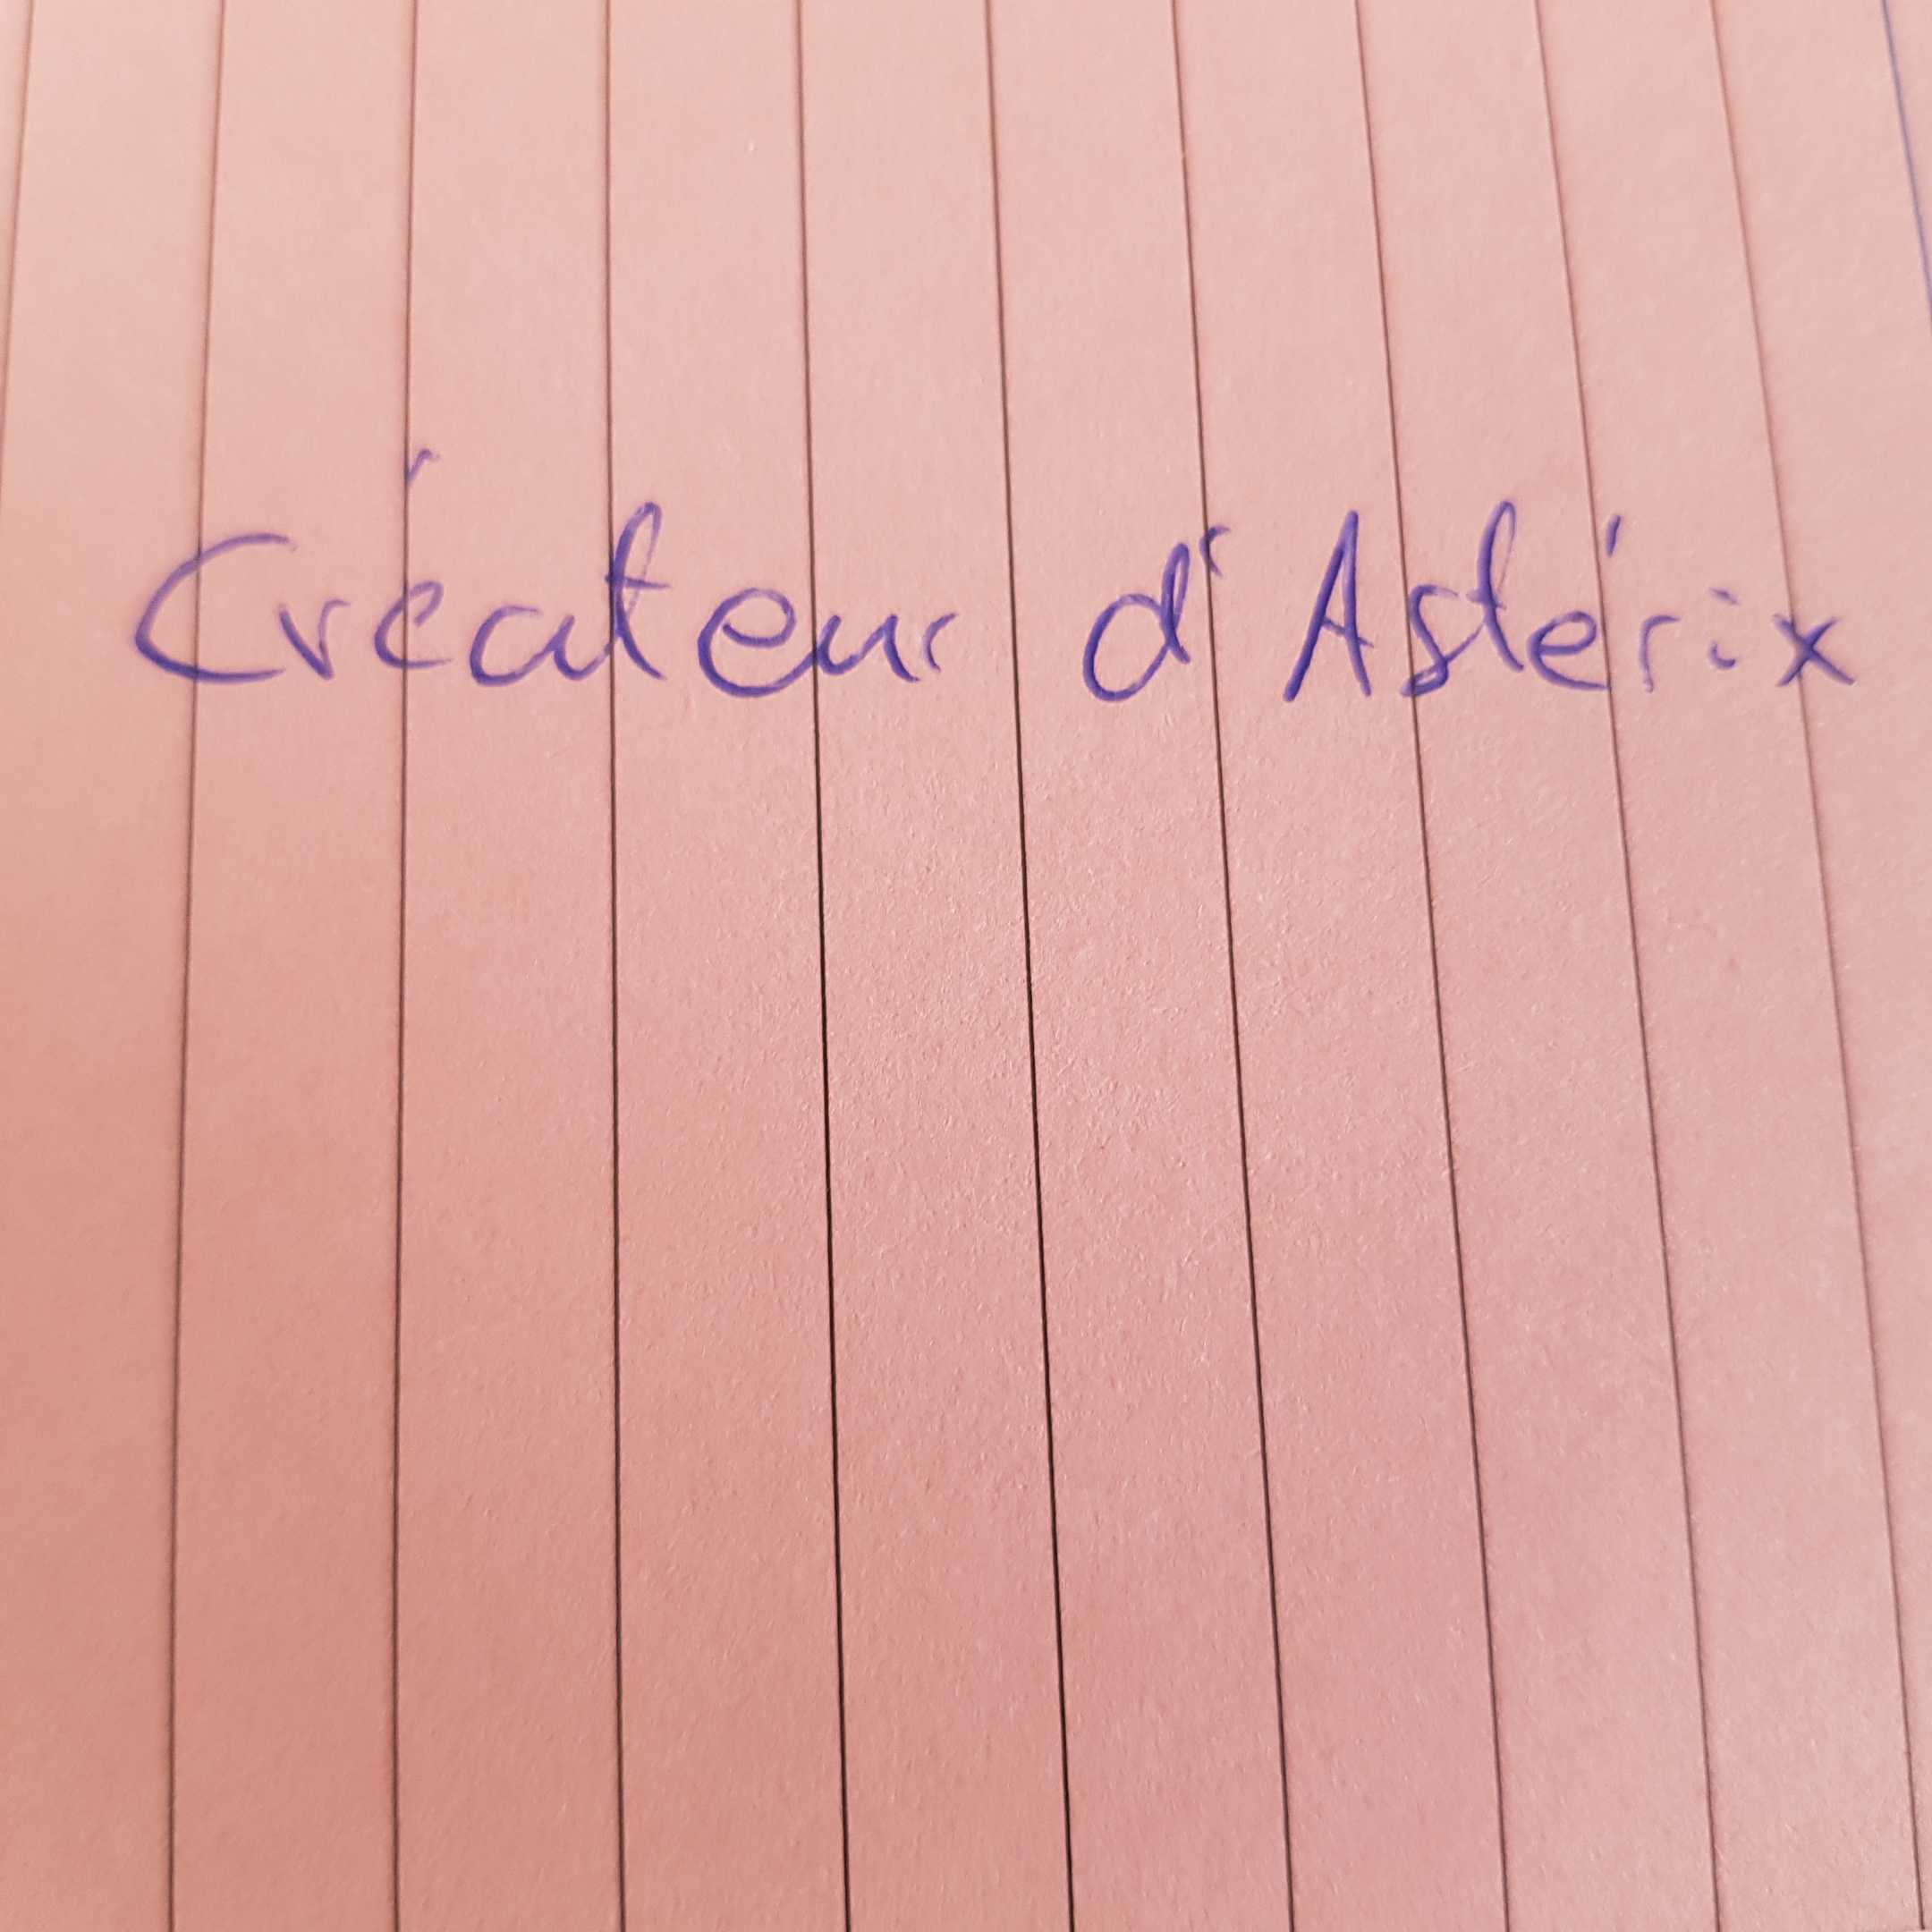 Créateur d'Astérix